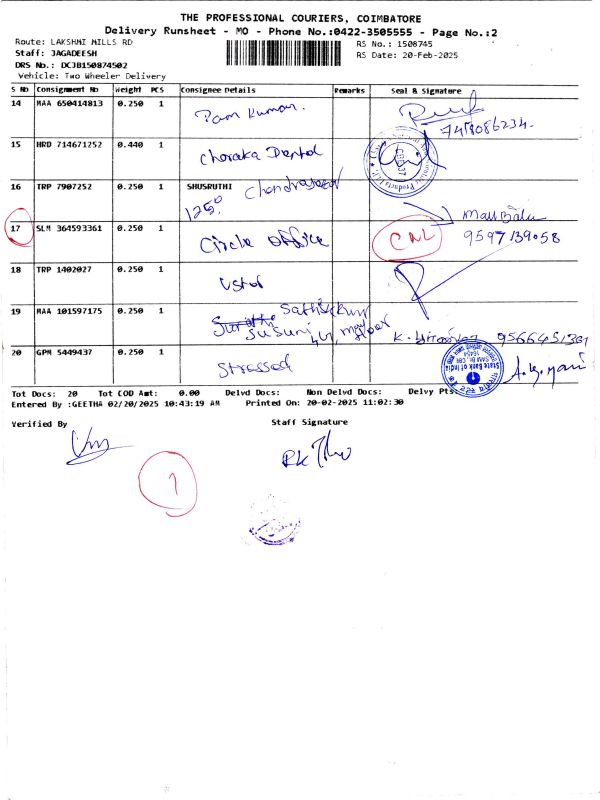 THE PROFESSIONAL COURIERS, COIMBATORE
Delivery Runsheet - MO - Phone No.:0422-3505555 - Page No.:2
Route: LAKSHMI MILLS RD
Staff: JAGADEESH
DRS No.: DCJB150874502
Vehicle: Two Wheeler Delivery
RS No.: 1508745
RS Date: 20-Feb-2025
S No Consignment No Weight PCS Consignee Details Remarks Seal & Signature
14 MAA 650414813 0.250 1 Ram Kumar.
15 HRD 714671252 0.440 1 Charaka Dental
16 TRP 7907252 0.250 1 SHUSRUTHI Chandrasekar
1250
17 SLM 364593361 0.250 1 Circle office CNL
9597139058
18 TRP 1402027 0.250 1
19 MAA 101597175 0.250 1
20 GPM 5449437 0.250 1 Stressed
State Bank of India
Tot Docs: 20 Tot COD Amt: 0.00 Delvd Docs: Non Delvd Docs: Delvy Pts:
Entered By :GEETHA 02/20/2025 10:43:19 AM Printed On: 20-02-2025 11:02:30
Verified By Staff Signature